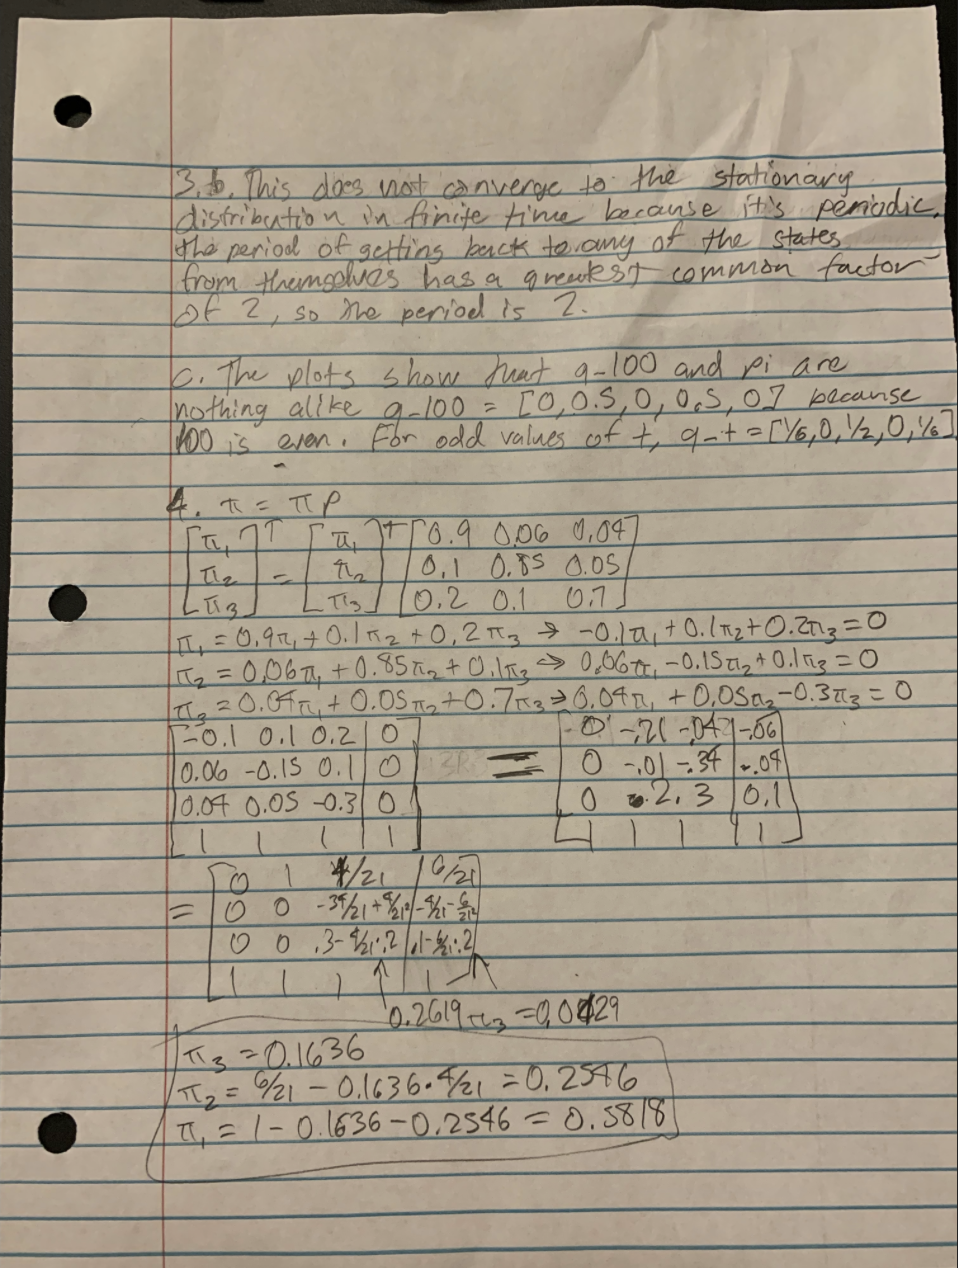 3.b. This does not converge to the stationary
distribution in finite time because it's periodic.
the period of getting back to any of the states
from themselves has a greatest common factor
of 2, so the period is 2.
c. The plots show that q-100 and pi are
nothing alike q-100 = [0, 0.5, 0, 0.5, 0] because
100 is even. For odd values of t, q-t = [1/6, 0, 1/2, 0, 1/6]
4. π = πP
[π₁ π₂ π₃]ᵀ = [π₁ π₂ π₃]ᵀ [0.9 0.06 0.04
0.1 0.85 0.05
0.2 0.1 0.7]
π₁ = 0.9π₁ + 0.1π₂ + 0.2π₃ → -0.1π₁ + 0.1π₂ + 0.2π₃ = 0
π₂ = 0.06π₁ + 0.85π₂ + 0.1π₃ → 0.06π₁ - 0.15π₂ + 0.1π₃ = 0
π₃ = 0.04π₁ + 0.05π₂ + 0.7π₃ → 0.04π₁ + 0.05π₂ - 0.3π₃ = 0
[-0.1 0.1 0.2 | 0] = [0 -.21 -.04 | -.06]
[0.06 -0.15 0.1 | 0] [0 -.01 -.34 | -.04]
[0.04 0.05 -0.3 | 0] [0 .2 .3 | 0.1]
[1 1 1 | 1] [1 1 1 | 1]
= [0 1 4/21 | 6/21]
[0 0 -34/21 + 4/21² | -4/21 - 6/21²]
[0 0 .3 - 4/21·.2 | .1 - 6/21·.2]
[1 1 1 | 1]
0.2619π₃ = 0.0429
π₃ = 0.1636
π₂ = 6/21 - 0.1636·4/21 = 0.2546
π₁ = 1 - 0.1636 - 0.2546 = 0.5818